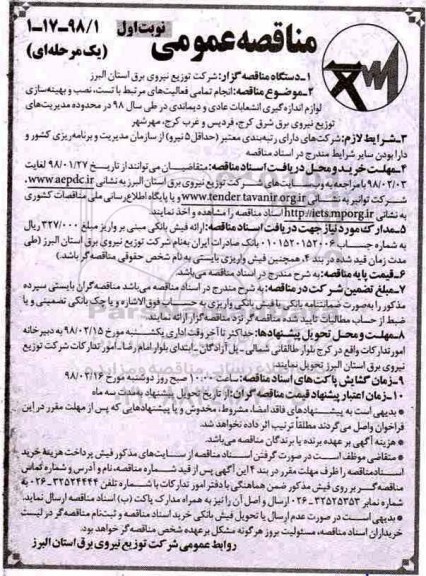 مناقصه عمومی
نوبت اول
۹۸/۱-۱۷-۱
(یک مرحله‌ای)
۱-دستگاه مناقصه گزار: شرکت توزیع نیروی برق استان البرز
۲-موضوع مناقصه: انجام تمامی فعالیت‌های مرتبط با تست، نصب و بهینه‌سازی
لوازم اندازه‌گیری انشعابات عادی و دیماندی در طی سال ۹۸ در محدوده مدیریت‌های
توزیع نیروی برق شرق کرج، فردیس و غرب کرج، مهرشهر
۳-شرایط لازم: شرکت‌های دارای رتبه‌بندی معتبر (حداقل ۵ نیرو) از سازمان مدیریت و برنامه‌ریزی کشور و
دارا بودن سایر شرایط مندرج در اسناد مناقصه
۴-مهلت خرید و محل دریافت اسناد مناقصه: متقاضیان می‌توانند از تاریخ ۹۸/۰۱/۲۷ لغایت
۹۸/۰۲/۰۳ با مراجعه به وب سایت‌های شرکت توزیع نیروی برق استان البرز به نشانی www.aepdc.ir،
شرکت توانیر به نشانی www.tender.tavanir.org.ir و یا پایگاه اطلاع رسانی ملی مناقصات کشوری
به نشانی http://iets.mporg.ir اسناد مناقصه را مشاهده و اخذ نمایند
۵-مدارک مورد نیاز جهت دریافت اسناد مناقصه: ارائه فیش بانکی مبنی بر واریز مبلغ ۳۲۷/۰۰۰ ریال
به شماره حساب ۰۱۰۱۵۲۰۱۵۲۰۰۶ بانک صادرات ایران به‌نام شرکت توزیع نیروی برق استان البرز (طی
مدت زمان قید شده در بند ۴، همچنین فیش واریزی بایستی به نام شخص حقوقی مناقصه‌گر باشد.)
۶-قیمت پایه مناقصه: به شرح مندرج در اسناد مناقصه می‌باشد.
۷-مبلغ تضمین شرکت در مناقصه: به شرح مندرج در اسناد مناقصه می‌باشد مناقصه‌گران بایستی سپرده
مذکور را به‌صورت ضمانتنامه بانکی یا فیش بانکی واریزی به حساب فوق‌الاشاره و یا چک بانکی تضمینی و یا
ضبط از حساب مطالبات تایید شده مناقصه گر نزد مناقصه‌گزار ارائه نمایند.
۸-مهلت و محل تحویل پیشنهادها: حداکثر تا آخر وقت اداری یکشنبه مورخ ۹۸/۰۲/۱۵ به دبیرخانه
امور تدارکات واقع در کرج بلوار طالقانی شمالی - پل آزادگان - ابتدای بلوار امام رضا- امور تدارکات شرکت توزیع
نیروی برق استان البرز تحویل نمایند.
۹-زمان گشایش پاکت‌های اسناد مناقصه: ساعت ۱۰:۰۰ صبح روز دوشنبه مورخ ۹۸/۰۲/۱۶
۱۰-زمان اعتبار پیشنهاد قیمت مناقصه گران: از تاریخ تحویل پیشنهاد به‌مدت سه ماه
• بدیهی است به پیشنهادهای فاقد امضا، مشروط، مخدوش و یا پیشنهادهایی که پس از مهلت مقرر در این
فراخوان واصل می‌گردند مطلقاً ترتیب اثر داده نخواهد شد.
• هزینه آگهی بر عهده برنده یا برندگان مناقصه می‌باشد.
• متقاضی موظف است در صورت گرفتن اسناد مناقصه از سایت‌های مذکور فیش پرداخت هزینه خرید
اسناد مناقصه را ظرف مهلت مقرر در بند ۴ این آگهی پس از قید شماره مناقصه، نام و آدرس و شماره تماس
مناقصه‌گر بر روی فیش مذکور ضمن هماهنگی با دفتر امور تدارکات با شماره تلفن ۳۲۵۲۴۴۴۴-۰۲۶ به
شماره نمابر ۳۲۵۲۵۳۵۳-۰۲۶ ارسال و اصل آن را نیز به همراه مدارک پاکت (ب) اسناد مناقصه ارسال نماید.
• بدیهی است در صورت عدم ارسال یا تحویل فیش بانکی خرید اسناد مناقصه و ثبت‌نام مناقصه‌گر در لیست
خریداران اسناد مناقصه، مسئولیت بروز هرگونه مشکل برعهده شخص مناقصه‌گر خواهد بود.
روابط عمومی شرکت توزیع نیروی برق استان البرز